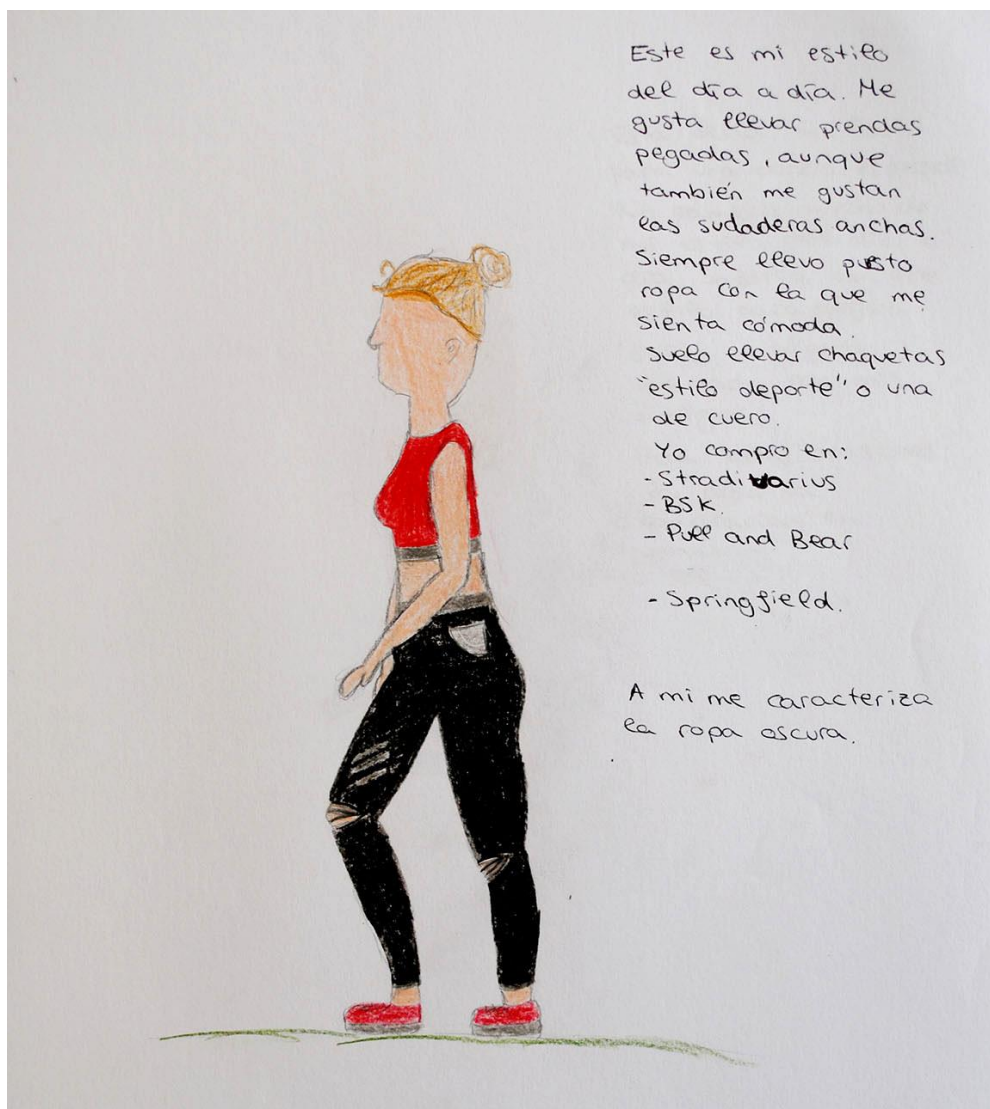 Este es mi estilo
del día a día. Me
gusta llevar prendas
pegadas, aunque
también me gustan
las sudaderas anchas.
Siempre llevo pusto
ropa con la que me
sienta cómoda.
Suelo llevar chaquetas
"estilo deporte" o una
de cuero.
Yo compro en:
- Stradivarius
- BSK.
- Pull and Bear
- Springfield.
A mi me caracteriza
la ropa oscura.